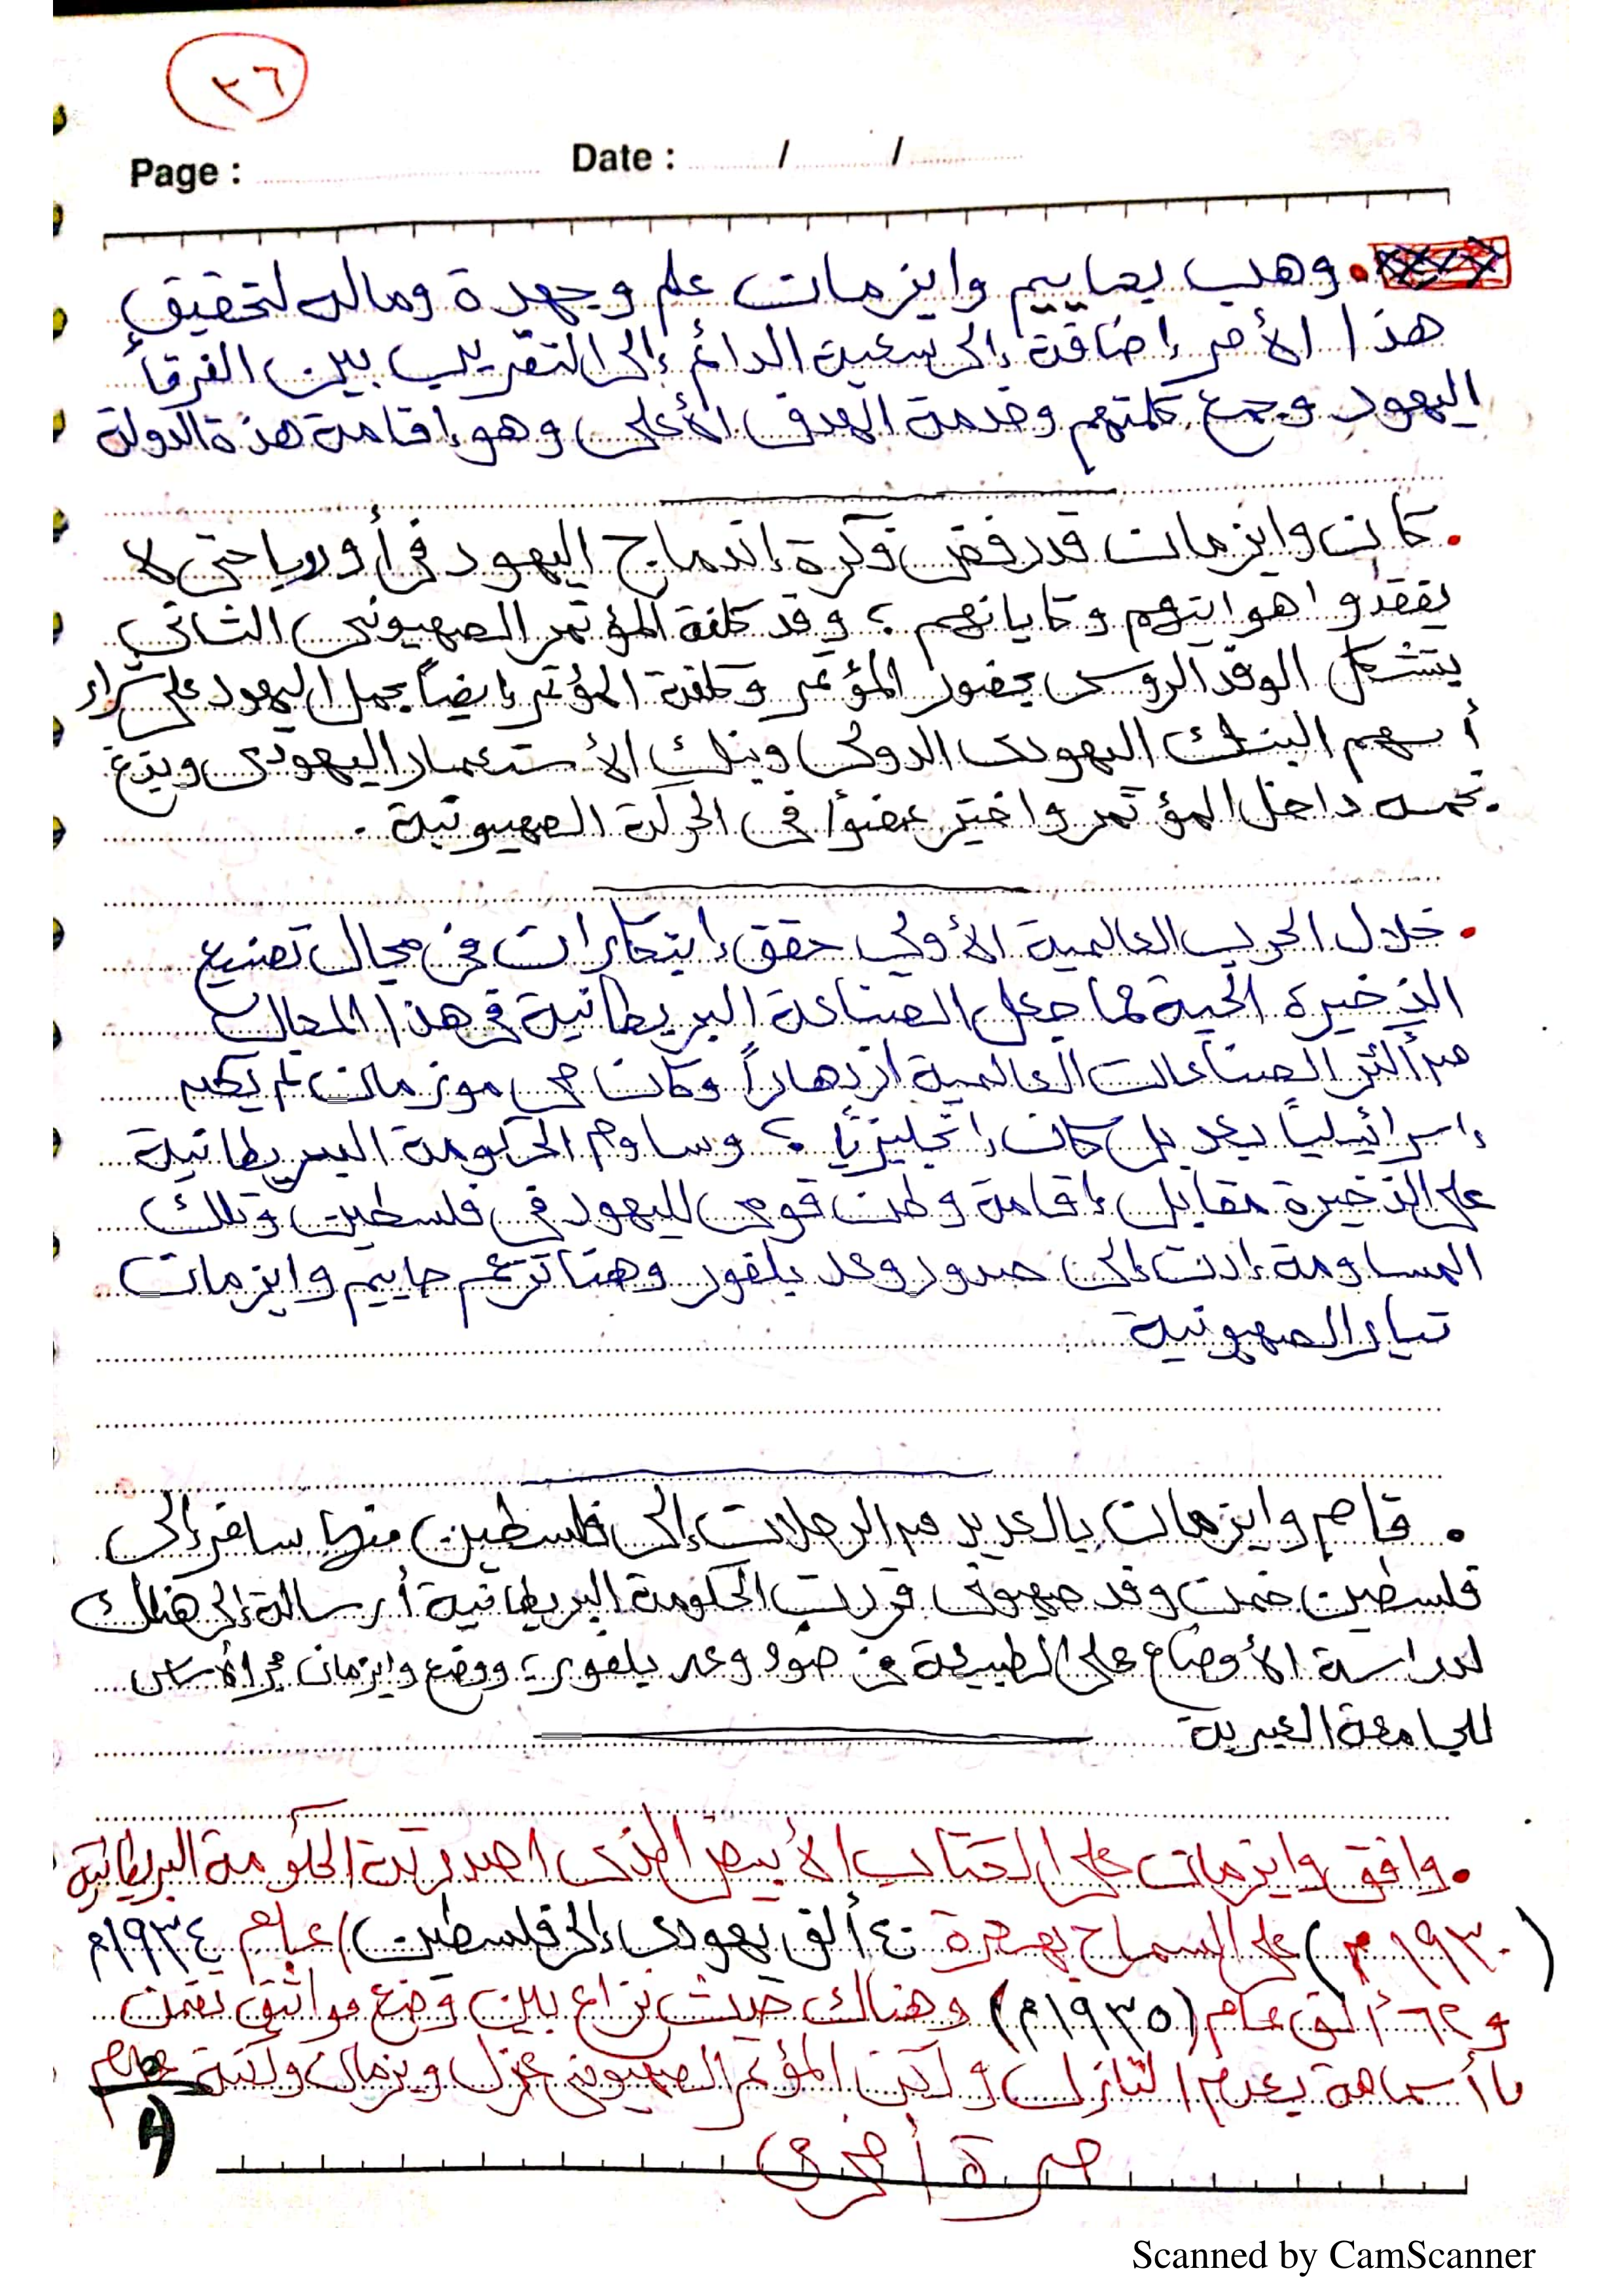 ٢٦
Page : Date : / /
. وهب يحاييم وايزمان علم وجهدة وماله لتحقيق
هذا الأمر إضافة إلى سعية الدائم إلى التقريب بين الفرقأ
اليهود وجمع كلمتهم وخدمة الهدف الأعلى وهو إقامة هذة الدولة
. كان وايزمان قد رفض فكرة إندماج اليهود فى أوروبا حتى لا
يفقدوا هوايتهم وكاياناتهم ؛ وقد كلفة المؤتمر الصهيونى الثانى
بتشكل الوفد الروسى بحضور المؤتمر وكلفة المؤتمر إيضاً بحمل اليهود على شراء
أسهم البنك اليهودى الدولى وبنك الأستعمار اليهودى
نجمه داخل المؤتمر واختير عضوًا فى الحركة الصهيونية .
. خلال الحرب العالمية الأولى حقق إبتكارات فى مجال تصنيع
الذخيرة الحية مما جعل الصناعة البريطانية فى هذا المجال
من أكثر الصناعات العالمية ازدهاراً وكان لم يكن
إسرائيلياً بعد بل كان إنجليزيًا ؛ وساوم الحكومة البريطانية
على الذخيرة مقابل إقامة وطن قومى لليهود فى فلسطين وتلك
المساومة إدت إلى صدور وعد بلفور وهنا تزعم حاييم وايزمان
تيار الصهيونية
. قام وايزمان بالعديد من الرحلات إلى فلسطين منها سافر إلى
فلسطين ضمن وفد صهيونى قررت الحكومة البريطانية أرسالة إلى هناك
لدراسة الأوضاع على الطبيعة فى ضوء وعد بلفور ؛ ووضع وايزمان حجر الأساس
للجامعة العبرية
. وافق وايزمان على الكتاب الأبيض الذى اصدرتة الحكومة البريطانية
(١٩٣٠م) على السماح بهجرة ٤٠ ألف يهودى إلى فلسطين) عام ١٩٣٤م
و ٦٢ ألف عام (١٩٣٥م) وهناك حدث نزاع بين وضع مواثيق تضمن
ما أسماة بعدم التنازل ولكن المؤتمر الصهيونى عزل ويزمان ولكنة عام
مرة أخرى
Scanned by CamScanner